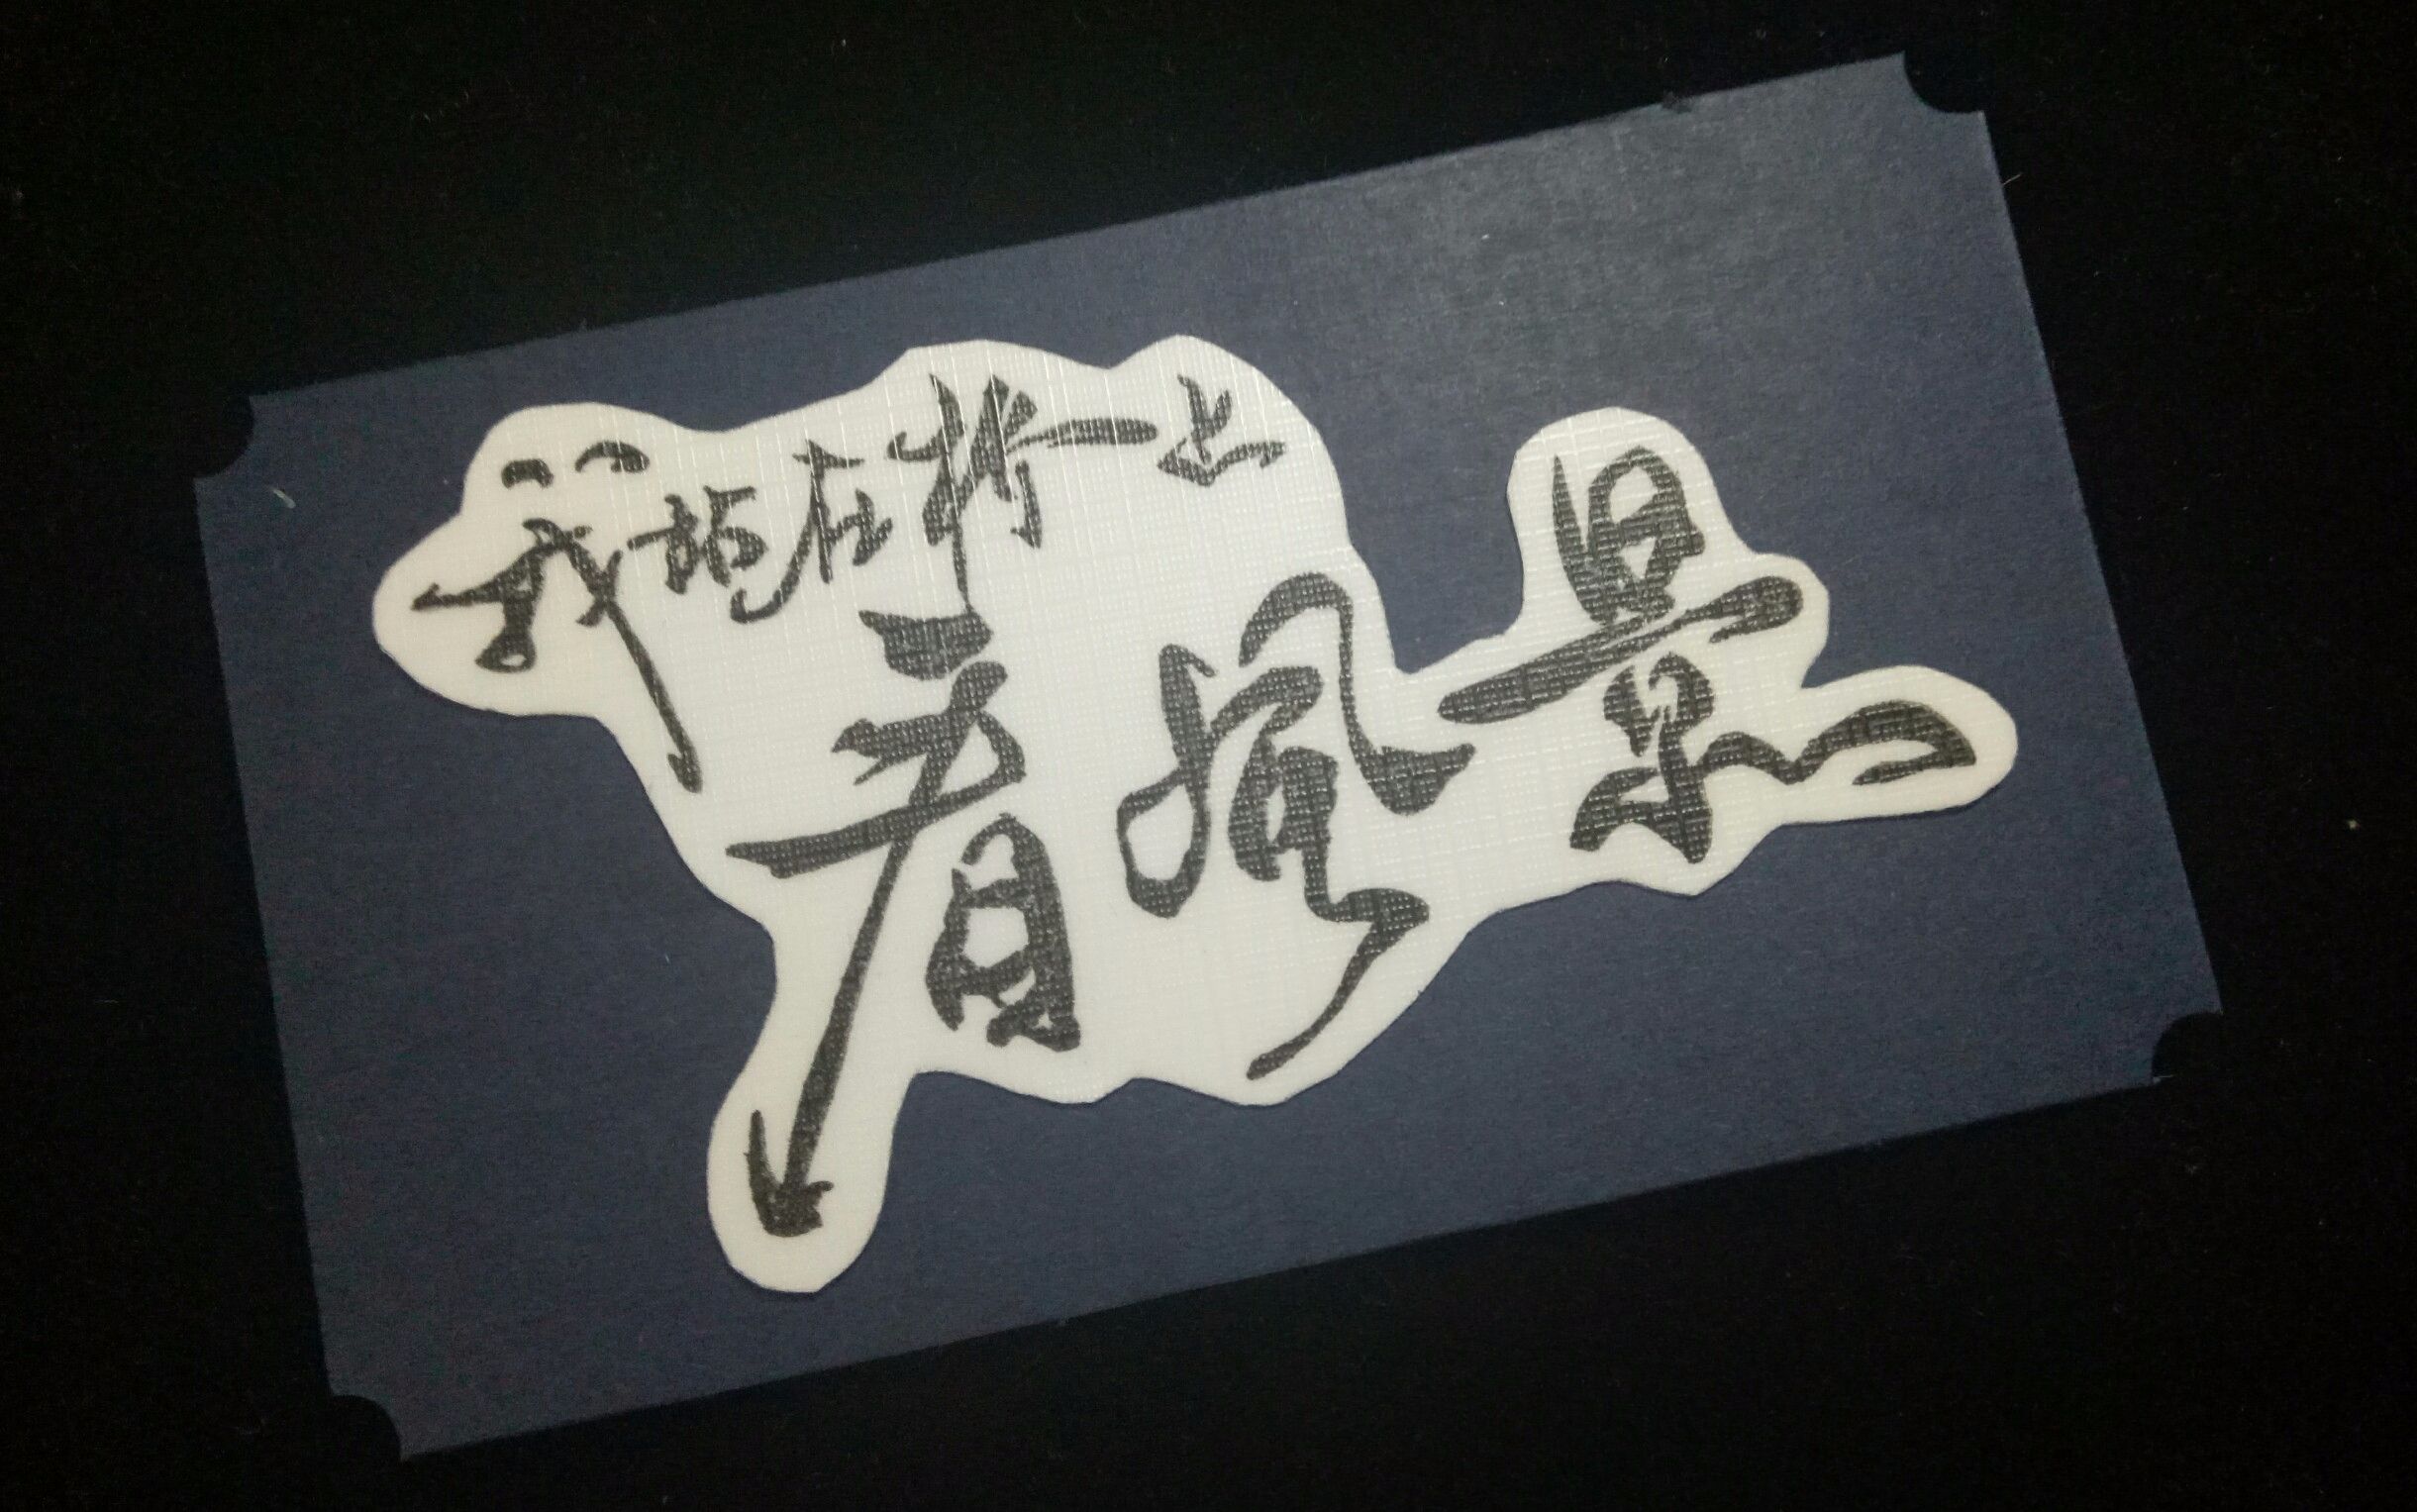 我站在桥上
看风景